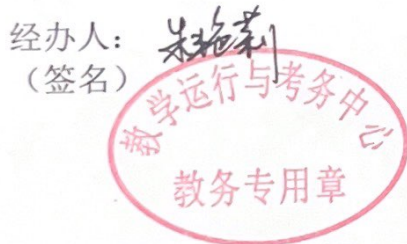 经办人：朱艳莉
（签名）
教学运行与考务中心
教务专用章